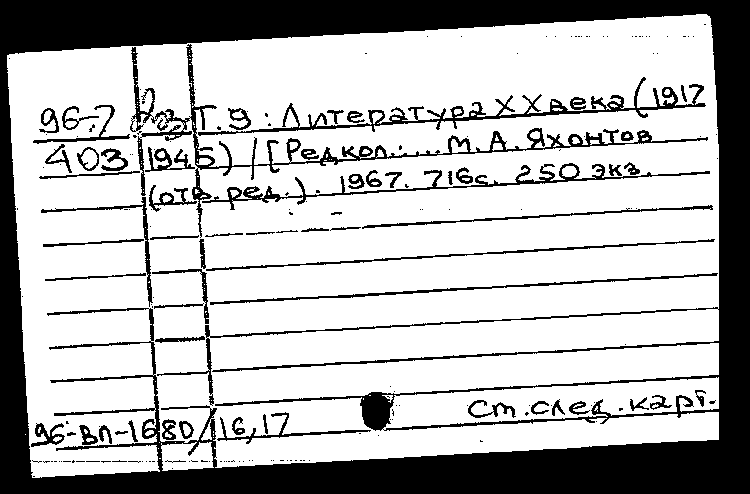 96-7 Т.9: Литература XX века (1917
403 1945) / [Редкол.: ... М. А. Яхонтов
(отв. ред.). 1967. 716с. 250 экз.
96-ВЛ-1680/16,17
См. след. карт.